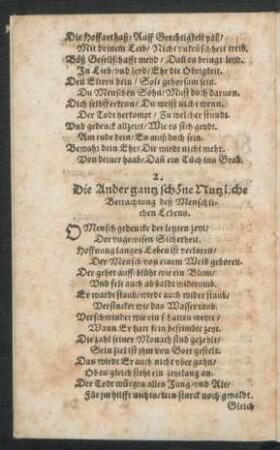 Die Hoffart haß / Auff Grechtigkeit paß /
Mit deinem Leib / Nicht unkeüschheit treib.
Böß Gesellschafft meyd / Dañ es bringt leyd.
In Lieb und leyd / Ehr die Obrigkeit.
Den Eltern dein / Solt gehorsam sein.
Du Menschen Sohn / Must doch darvon.
Dich selbst erkenn / Du weist nicht wenn.
Der Todt verkompt / Zu welcher stundt.
Und gedenck allzeit / Wie es sich geydt.
Am ende dein / Es muß doch sein.
Bewahr dein Ehr / Dir wirdt nicht mehr.
Von deiner haab / Dañ ein Tuch ins Grab.
2.
Die Ander gantz schöne Nutzliche
Betrachtung deß Menschli-
chen Lebens.
O Mensch gedencke der letzten zeyt /
Der ungewisen Sicherheit.
Hoffnung langes Leben ist verloren /
Der Mensch von einem Weib geboren.
Der gehet auff / blüht wie ein Blum /
Und felt auch ab baldt widerumb.
Er wardt staub / wirdt auch wider staub /
Versincket wie das Wasser taub.
Verschwindet wie ein schatten weyt /
Wann Er hatt sein bestimbte zeyt.
Die zahl seiner Monath sind gezehlt /
Sein ziel ist jhm von Gott gestelt.
Das wirdt Er auch nicht ubergahn /
Ob es gleich stehe ein zeytlang an.
Der Todt würget alles Jung / und Alt /
Für jm hilfft nichts / kein starck noch gewaldt.
Gleich